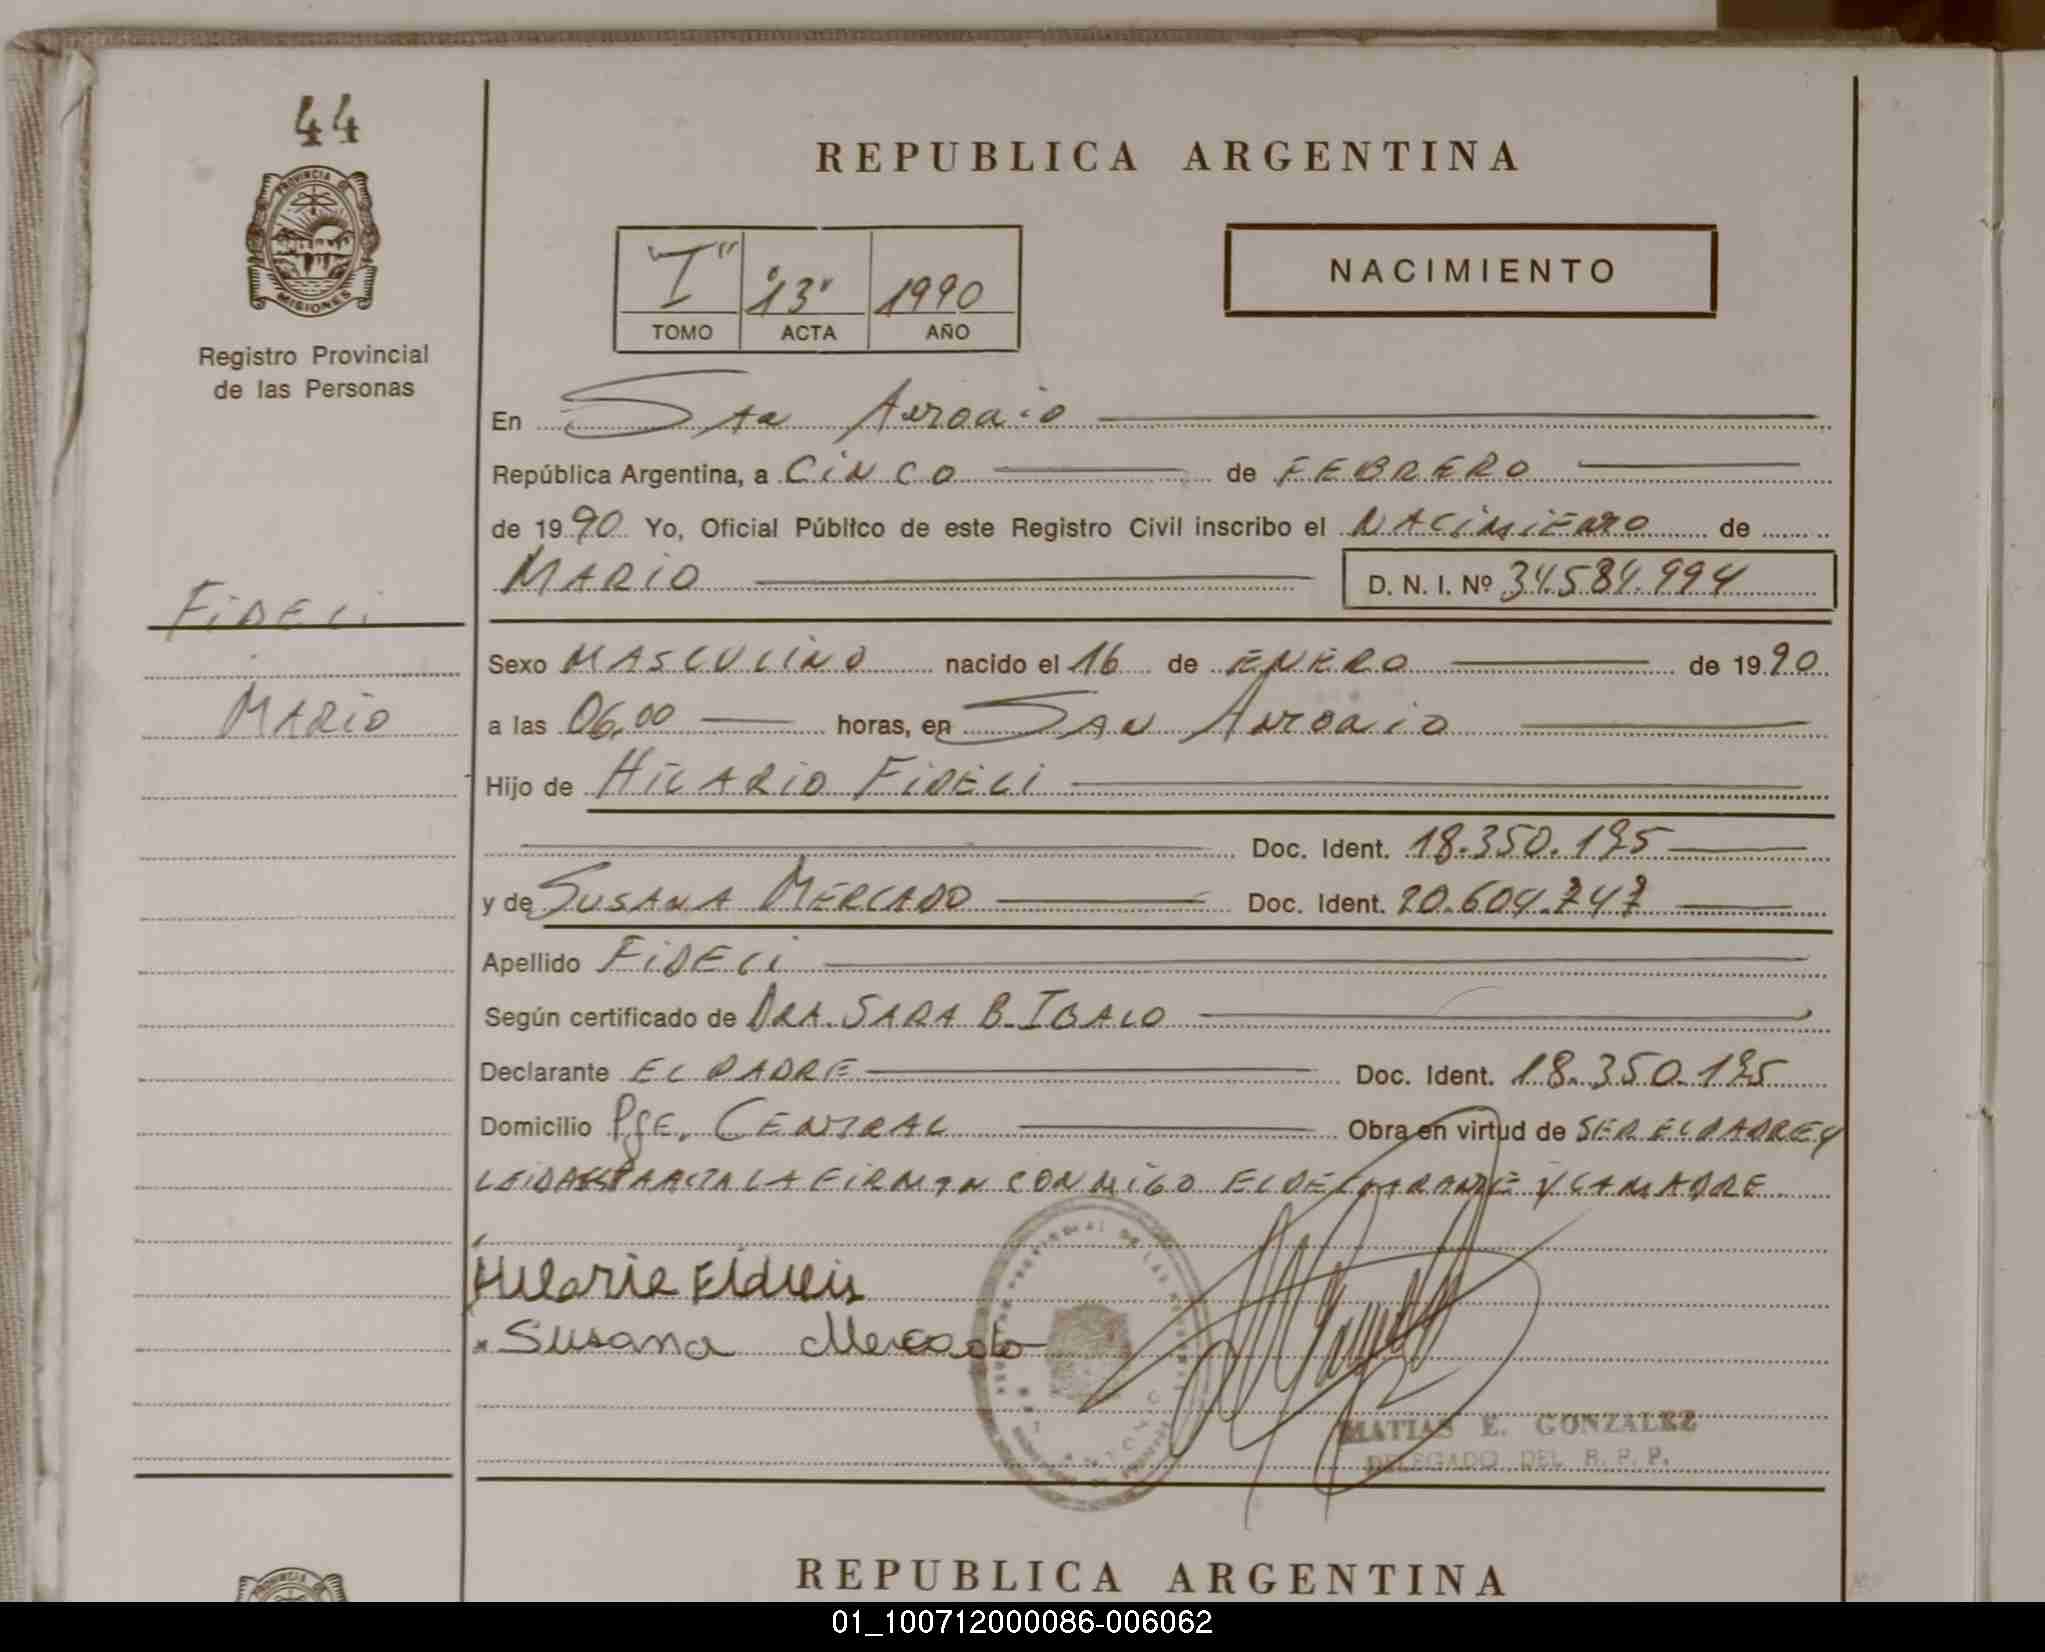 44
PROVINCIA DE
MISIONES
Registro Provincial
de las Personas
REPUBLICA ARGENTINA
"I" "13" 1990
TOMO ACTA AÑO
NACIMIENTO
En San Antonio
República Argentina, a CINCO de FEBRERO
de 1990 Yo, Oficial Público de este Registro Civil inscribo el NACIMIENTO de
MARIO D. N. I. Nº 34.584.994
FIDELI
MARIO
Sexo MASCULINO nacido el 16 de ENERO de 1990
a las 06,00 horas, en SAN ANTONIO
Hijo de HILARIO FIDELI
Doc. Ident. 18.350.195
y de SUSANA MERCADO Doc. Ident. 20.604.747
Apellido FIDELI
Según certificado de DRA. SARA B. IBALO
Declarante EL PADRE Doc. Ident. 18.350.195
Domicilio PJE. CENTRAL Obra en virtud de SER EL PADRE Y
LEIDA EL ACTA LA FIRMAN CONMIGO EL DECLARANTE Y LA MADRE
Hilario Fidelis
Susana Mercado
MATIAS E. GONZALEZ
DELEGADO DEL R. P. P.
REPUBLICA ARGENTINA
01_100712000086-006062